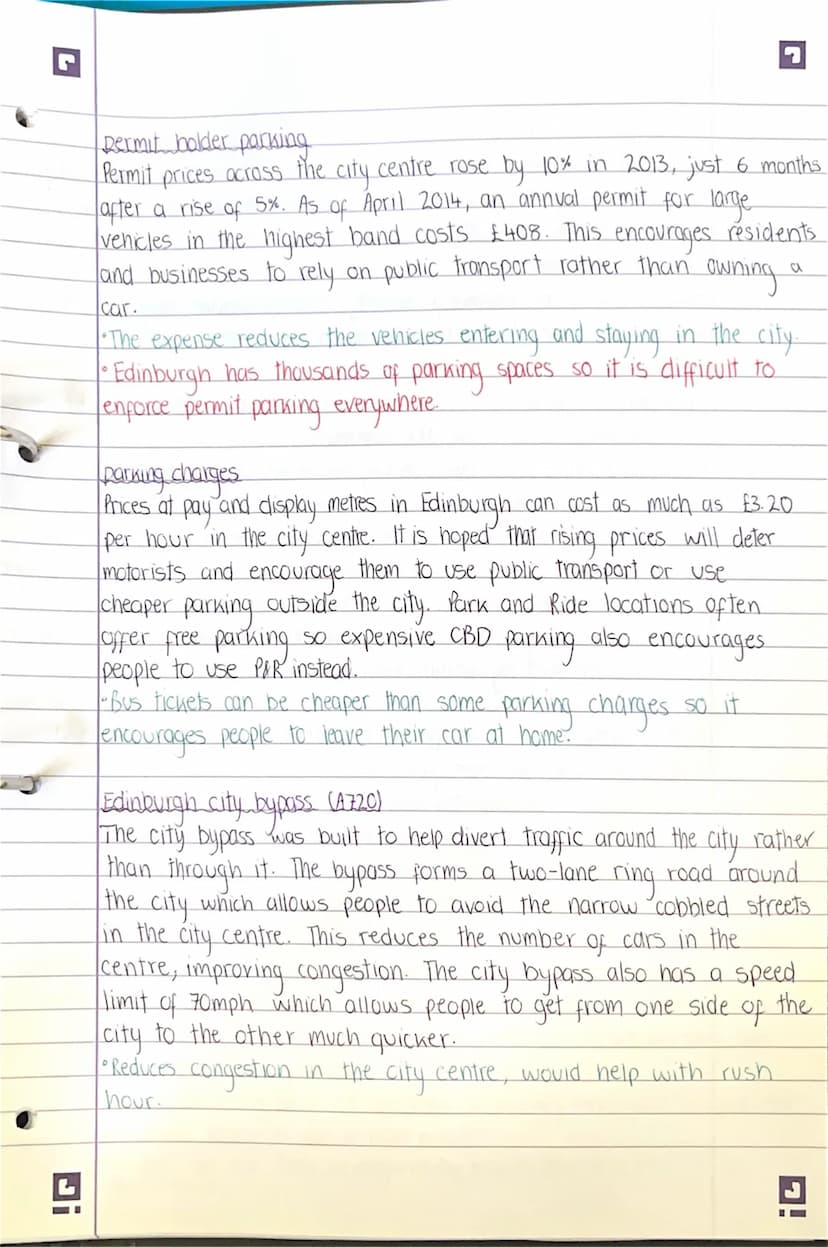 permit holder parking
Permit prices across the city centre rose by 10% in 2013, just 6 months
after a rise of 5%. As of April 2014, an annual permit for large
vehicles in the highest band costs £408. This encourages residents
and businesses to rely on public transport rather than owning a
car.
•The expense reduces the vehicles entering and staying in the city.
•Edinburgh has thousands of parking spaces so it is difficult to
enforce permit parking everywhere.
parking charges
Prices at pay and display metres in Edinburgh can cost as much as £3.20
per hour in the city centre. It is hoped that rising prices will deter
motorists and encourage them to use public transport or use
cheaper parking outside the city. Park and Ride locations often
offer free parking so expensive CBD parking also encourages
people to use P&R instead.
•Bus tickets can be cheaper than some parking charges so it
encourages people to leave their car at home.
Edinburgh city bypass (A720)
The city bypass was built to help divert traffic around the city rather
than through it. The bypass forms a two-lane ring road around
the city which allows people to avoid the narrow cobbled streets
in the city centre. This reduces the number of cars in the
centre, improving congestion. The city bypass also has a speed
limit of 70mph which allows people to get from one side of the
city to the other much quicker.
•Reduces congestion in the city centre, would help with rush
hour.